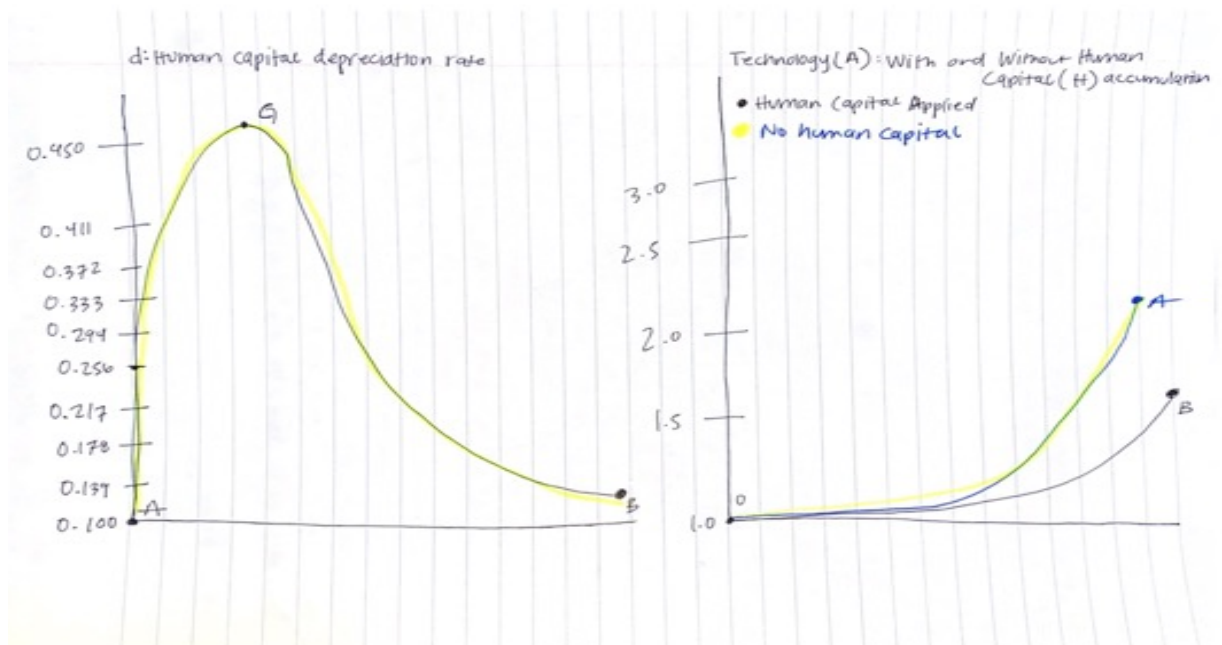 d: Human capital depreciation rate
G
0.450
0.411
0.372
0.333
0.294
0.256
0.217
0.178
0.139
0.100
A
B
Technology (A): With and Without Human
Capital (H) accumulation
Human Capital Applied
No human capital
3.0
2.5
2.0
1.5
1.0
0
A
B